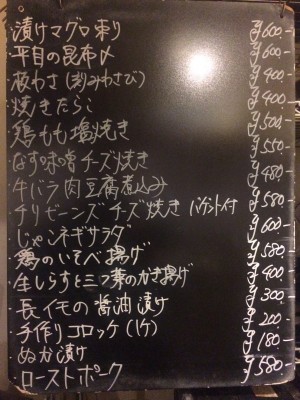 漬けマグロ刺り ¥600-
平目の昆布〆 ¥600-
板わさ(刻みわさび) ¥400-
焼きたらこ ¥400-
鶏もも塩焼き ¥500-
なす味噌チーズ焼き ¥550-
牛バラ肉豆腐煮込み ¥480-
チリビーンズチーズ焼き バゲット付 ¥580-
じゃこネギサラダ ¥600-
鶏のいそべ揚げ ¥580-
生しらすと三つ葉のかき揚げ ¥400-
長イモの醤油漬け ¥300-
手作りコロッケ(1ケ) ¥200-
ぬか漬け ¥180-
ローストポーク ¥580-